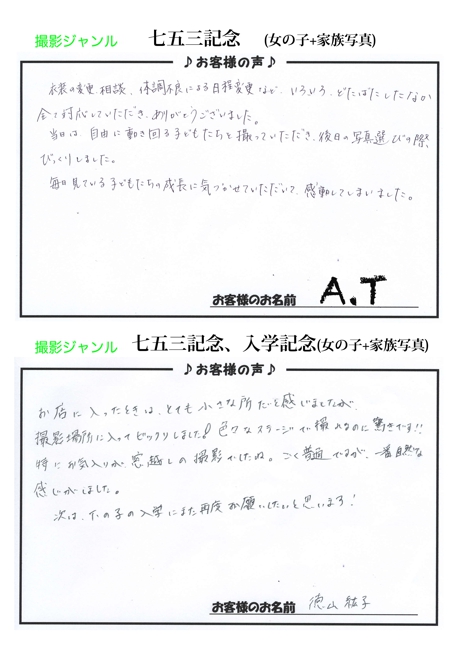 撮影ジャンル 七五三記念 (女の子+家族写真)
♪お客様の声♪
衣装の変更、相談、体調不良による日程変更など、いろいろ、どたばたしたなか
全て対応していただき、ありがとうございました。
当日は、自由に動き回る子どもたちを撮っていただき、後日の写真選びの際、
びっくりしました。
毎日見ている子どもたちの成長に気づかせていただいて、感動してしまいました。
お客様のお名前 A.T
撮影ジャンル 七五三記念、入学記念(女の子+家族写真)
♪お客様の声♪
お店に入ったときは、とても小さな所だと感じましたが、
撮影場所に入ってビックリしました!色々なステージで撮れるのに驚きです!!
特にお気入りが、窓越しの撮影でしたね。ごく普通ですが、一番自然な
感じがしました。
次は、下の子の入学にまた再度お願いしたいと思います!
お客様のお名前 徳山 紘子